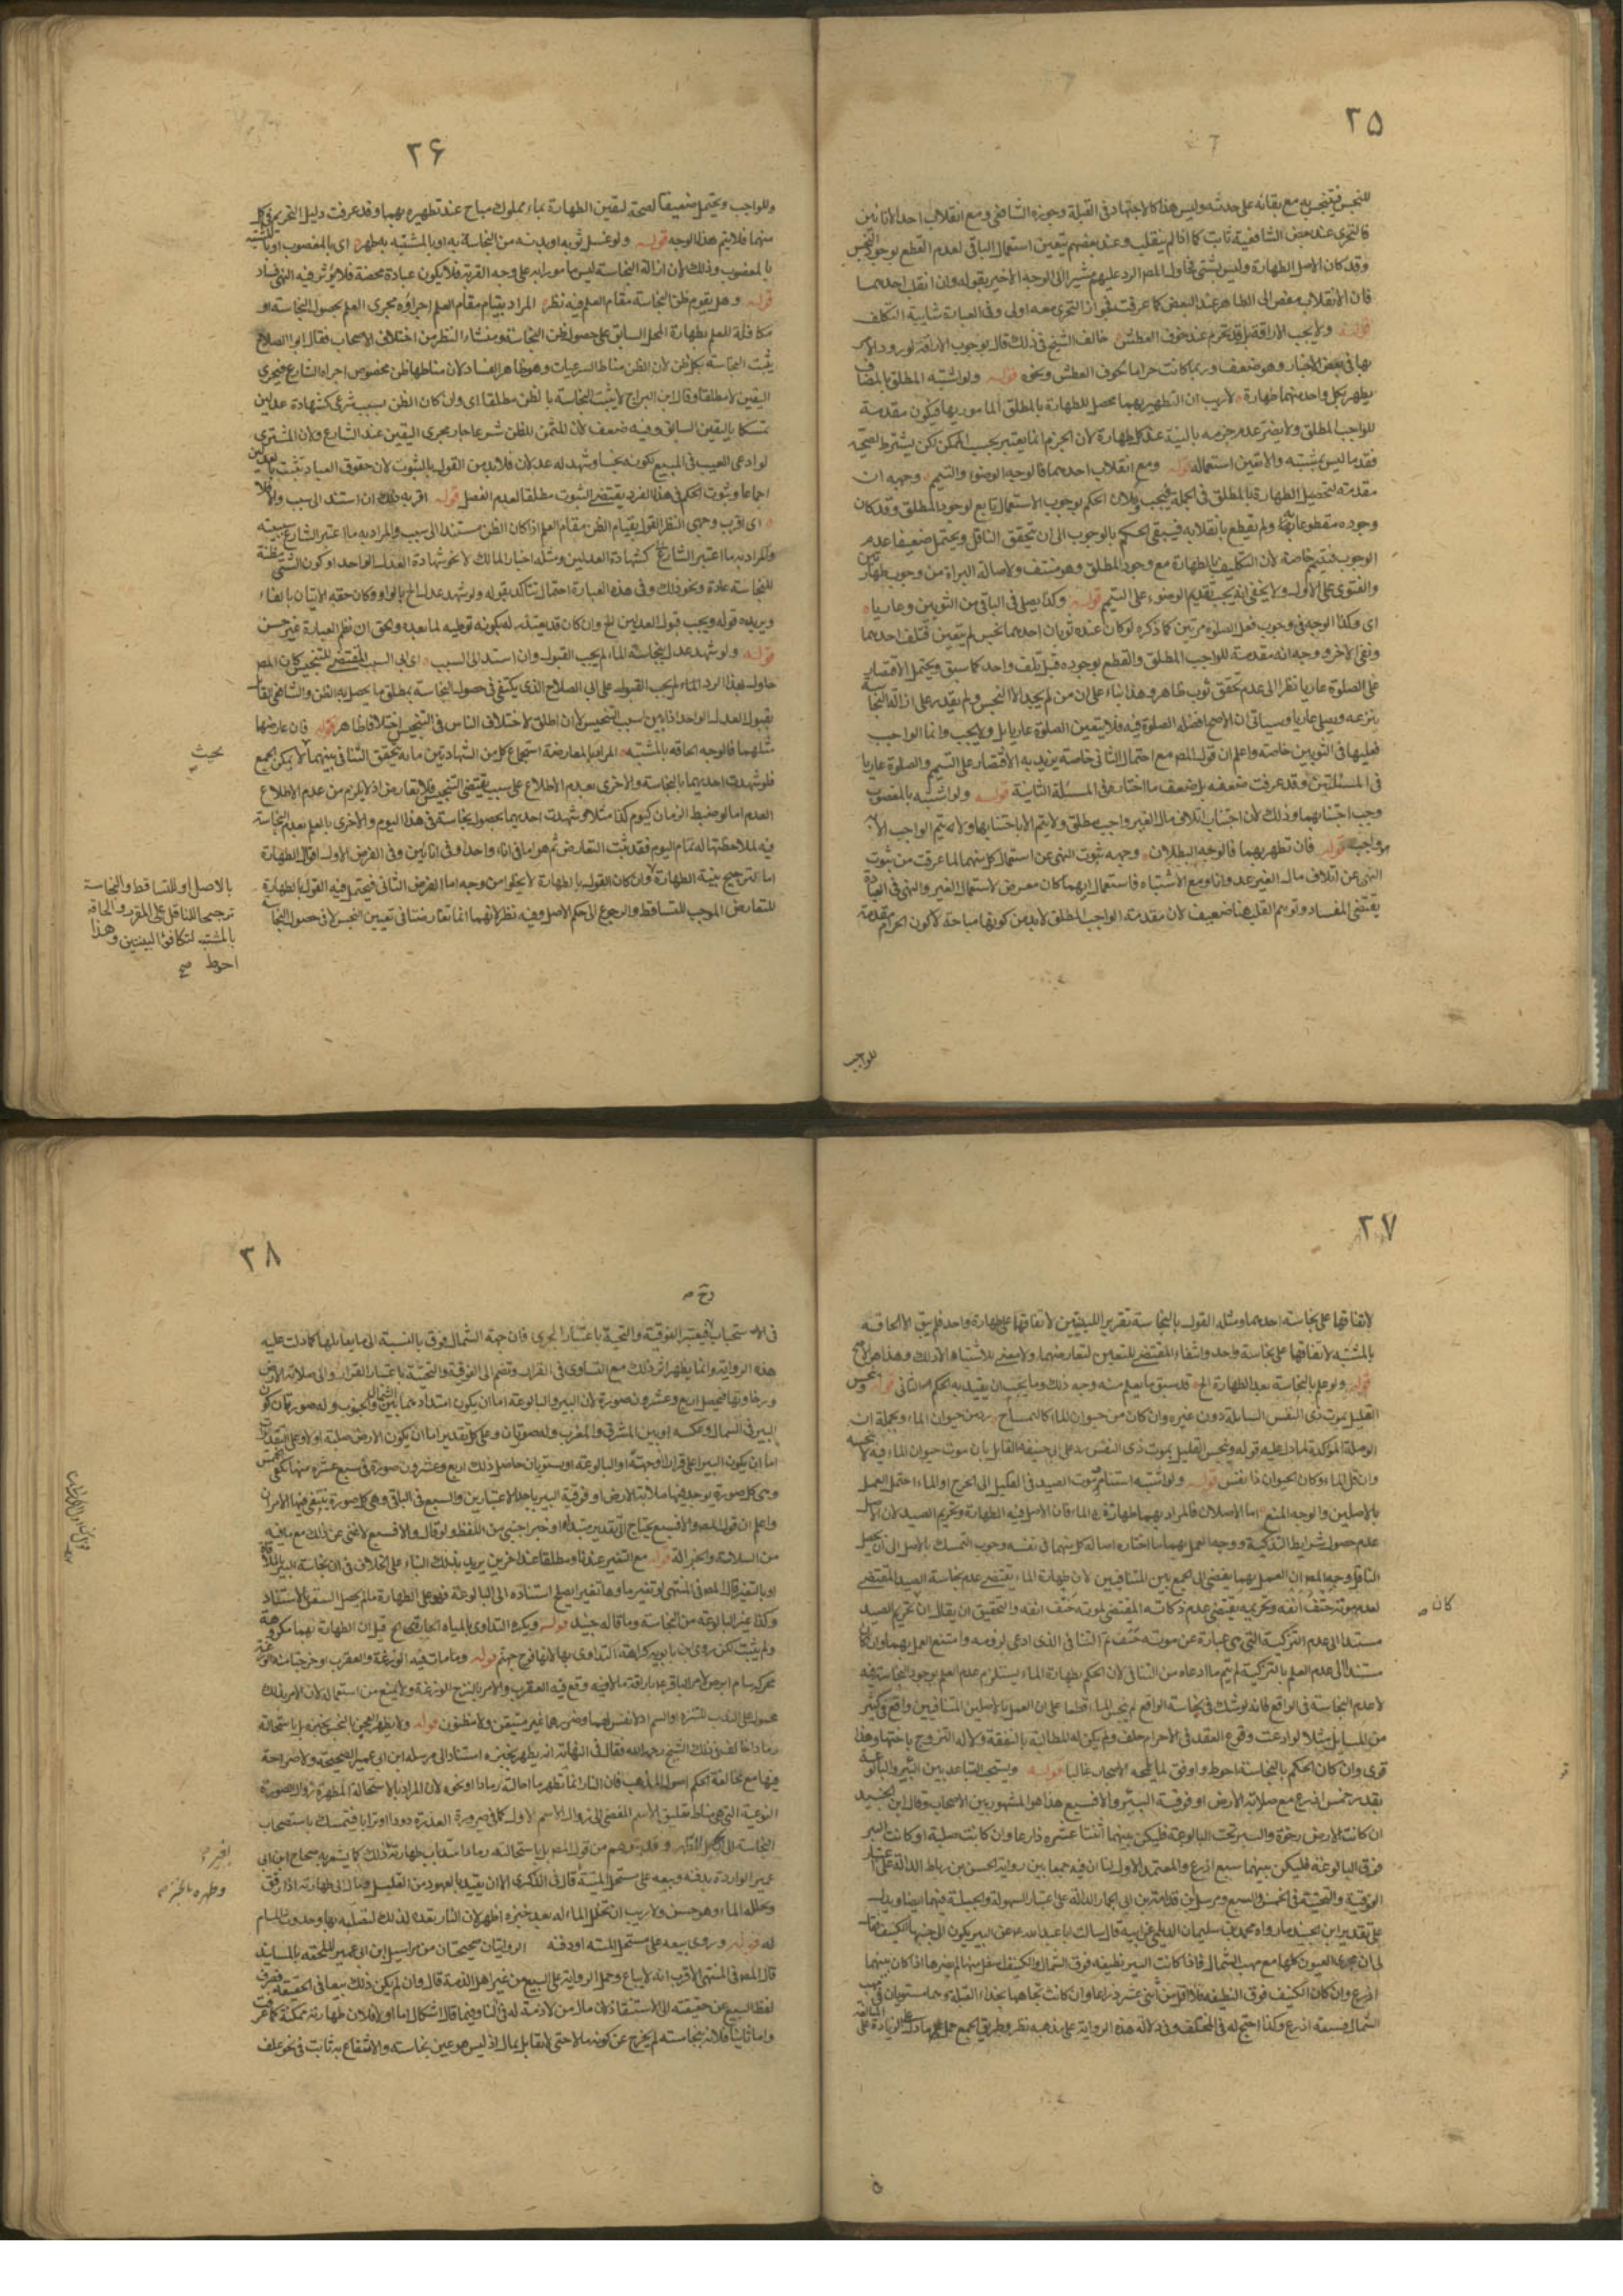 ٢٥
للنجس فينجس به مع بقائه على حدثه وليس هذا كالاجتهاد في القبلة وجوزه الشافعي ومع انقلاب احد الانائين
فالتحرى عند بعض الشافعية ثابت كما اذا لم ينقلب وعند بعضهم يتعين استعمال الباقى لعدم القطع بوجود النجس
وقد كان الاصل الطهارة وليس بشئ فحاول المص الرد عليهم مشيرا الى الوجه الاخير بقوله وان انقلب احدهما
فان الانقلاب مفض الى الطاهر عند البعض كما عرفت فجواز التحرى معه اولى وفى العبارة شايبة التكلف
قوله ولا يجب الاراقة بل قد تحرم عند خوف العطش خالف الشيخ في ذلك قال بوجوب الاراقة لورود الامر
بها في بعض الاخبار وهو ضعيف وربما كانت حراما لخوف العطش ونحوه قوله ولو اشتبه المطلق بالمضاف
يطهر بكل واحد منهما طهارة لا ريب ان التطهير بهما محصل للطهارة بالمطلق المامور بها فيكون مقدمة
للواجب المطلق ولا يضر عدم جزمه بالنية عند كل طهارة لان الجزم انما يعتبر بحسب الممكن لكن يشترط لصحته
فقد ما ليس بمشتبه والا تعين استعماله قوله ومع انقلاب احدهما فالوجه الوضوء والتيمم وجهه ان
مقدمته لتحصيل الطهارة بالمطلق فى الجملة فيجب ولان الحكم بوجوب الاستعمال تابع لوجود المطلق وقد كان
وجوده مقطوعا به ولم يقطع بانقلابه فيبقى الحكم بالوجوب الى ان تحقق الناقل ويحتمل ضعيفا عدم
الوجوب فيتيمم خاصة لان التكليف بالطهارة مع وجود المطلق وهو منتف ولاصالة البراة من وجوب طهارتين
والفتوى على الاول ولا يخفى انه يجب تقديم الوضوء على التيمم قوله وكذا يصلى فى الباقى من الثوبين وعاريا
اى وكذا الوجه فى وجوب فعل الصلوة مرتين كما ذكره لو كان عنده ثوبان احدهما نجس لم يتعين فتلف احدهما
وبقى الاخر ووجه انه مقدمة للواجب المطلق والقطع بوجوده قبل تلف واحد كما سبق ويحتمل الاقتصار
على الصلوة عاريا نظرا الى عدم تحقق ثوب طاهر وهذا بناء على ان من لم يجد الا النجس ولم يقدر على ازالة النجاسة
ينزعه ويصلى عاريا وسياتى ان الاصح افضلية الصلوة فيه فلا يتعين الصلوة عاريا بل ولا يجب وانما الواجب
فعلها فى الثوبين خاصة واعلم ان قول المص مع احتمال الثانى خاصة يريد به الاقتصار على التيمم والصلوة عاريا
فى المسئلتين وقد عرفت ضعفه بل ضعف ما اختاره فى المسئلة الثانية قوله ولو اشتبه بالمغصوب
وجب اجتنابهما وذلك لان اجتناب اتلاف مال الغير واجب مطلق ولا يتم الا باجتنابهما وما لا يتم الواجب الا به
فهو واجب قوله فان تطهر بهما فالوجه البطلان وجهه ثبوت النهى عن استعمال كل منهما لما عرفت من ثبوت
النهى عن اتلاف مال الغير عدوانا ومع الاشتباه فاستعمال ايهما كان معرض لاستعمال الغير والنهى فى العبادة
يقتضى الفساد وتوهم القلب هنا ضعيف لان مقدمة الواجب المطلق لابد من كونها مباحة لا كون الحرام مقدمة
للواجب
٢۶
وللواجب ويحتمل ضعيفا الصحة لتيقن الطهارة بماء مملوك مباح عند تطهيره بهما وقد عرفت دليل التحريم فى كل
منهما فلا يتم هذا الوجه قوله ولو غسل ثوبه او بدنه من النجاسة به او بالمشتبه به طهر اى بالمغصوب او بالمشتبه
بالمغصوب وذلك لان ازالة النجاسة ليس مامورا به على وجه القربة فلا يكون عبادة محضة فلا يؤثر فيه النهى فساد
قوله وهل يقوم ظن النجاسة مقام العلم فيه نظر المراد بقيام مقام العلم اجراؤه مجرى العلم بحصول النجاسة او
مكافاة للعلم بطهارة المحل السابق على حصول ظن النجاسة ومنشاء النظر من اختلاف الاصحاب فقال ابو الصلاح
يثبت النجاسة بكل ظن لان الظن مناط الشرعيات وهو ظاهر الفساد لان مناطها ظن مخصوص اجراه الشارع مجرى
اليقين لا مطلقا وقال ابن البراج لا يثبت النجاسة بالظن مطلقا اى وان كان الظن بسبب شرعى كشهادة عدلين
تمسكا باليقين السابق وفيه ضعف لان المثمر للظن شرعا جار مجرى اليقين عند الشارع ولان المشترى
لو ادعى العيب فى المبيع بكونه نجسا وشهد له عدلان فلابد من القول بالثبوت لان حقوق العباد تثبت بالعدلين
اجماعا وثبوت الحكم فى هذا الفرد يقتضى الثبوت مطلقا لعدم الفصل قوله اقربه ذلك ان استند الى سبب والا فلا
اى اقرب وجهى النظر القول بقيام الظن مقام العلم اذا كان الظن مستندا الى سبب والمراد به ما اعتبر الشارع سببيته
والمراد به ما اعتبر الشارع كشهادة العدلين ومثله اخبار المالك لا نحو شهادة العدل الواحد او كون الشئ مظنة
للنجاسة عادة ونحو ذلك وفى هذه العبارة احتمال يتاكد بقوله ولو شهد عدل الخ بالواو وكان حقه الاتيان بالفاء
ويزيده قوله ويجب قبول العدلين الخ وان كان قد يعتذر له بكونه توطية لما بعده والحق ان نظم العبارة غير حسن
قوله ولو شهد عدل بنجاسة الماء لم يجب القبول وان استند الى السبب اى الى السبب المقتضى للتنجيس كان المص
حاول بهذا الرد لم يجب القبول على ابى الصلاح الذى يكتفى فى حصول النجاسة بمطلق ما يحصل به الظن والشافعى القائل
بقبول العدل الواحد اذا بين سبب التنجيس لا ان اطلق لاختلاف الناس فى التنجيس اختلافا ظاهرا قوله فان عارضها
مثلهما فالوجه الحاقه بالمشتبه المراد بالمعارضة استجماع كل من الشهادتين ما به يتحقق التنافى بينهما بحيث لا يمكن الجمع
فلو شهدت احديهما بالنجاسة والاخرى بعدم الاطلاع على سبب يقتضى التنجيس فلا تعارض اذ لا يلزم من عدم الاطلاع
العدم اما لو ضبط الزمان كيوم كذا مثلا وشهدت احديهما بحصول نجاسة فى هذا اليوم والاخرى بالعلم بعدم النجاسة
فيه لملاحظتها له تمام اليوم فقد ثبت التعارض ثم هو اما فى اناء واحد او فى انائين وفى الفرض الاول اقوال الطهارة
اما لترجيح بينة الطهارة وان كان القول بالطهارة لا يخلو من وجه اما الفرض الثانى فيحتمل فيه القول بالطهارة
للتعارض الموجب للتساقط والرجوع الى حكم الاصل وفيه نظر لانهما انما تعارضتا فى تعيين النجس لا فى حصول النجاسة
بحيث
بالاصل او للتساقط والنجاسة
ترجيحا للناقل على المقرر والحاقه
بالمشتبه لتكافؤ البينتين وهذا
احوط صح
٢٧
لاتفاقها على نجاسة احدهما ومثله القول بالنجاسة تقريرا للبينتين لاتفاقها على طهارة واحد فلم يبق الا الحاقه
بالمشتبه لاتفاقها على نجاسة واحد وانتفاء المقتضى للتعيين لتعارضهما ولا معنى للاشتباه الا ذلك وهذا هو الاصح
قوله ولو علم بالنجاسة بعد الطهارة الخ قد سبق ما يعلم منه وجه ذلك وما يجب ان يقيد به الحكم الثانى قوله وينجس
القليل بموت ذى النفس السايلة دون غيره وان كان من حيوان الماء كالتمساح من حيوان الماء وبجملة ان
الوصلة المؤكدة لما دل عليه قوله وينجس القليل بموت ذى النفس رد على ابى حنيفة القايل بان موت حيوان الماء فيه لا ينجسه
وان قل الماء وكان الحيوان ذا نفس قوله ولو اشتبه استناد موت الصيد فى القليل الى الجرح او الماء احتمل العمل
بالاصلين والوجه المنع اما الاصلان فالمراد بهما طهارة الماء فان الاصل فيه الطهارة وتحريم الصيد لان الاصل
عدم حصول شرايط التذكية ووجه العمل بهما ما اختاره اصالة كل منهما فى نفسه وجوب التمسك بالاصل الى ان يحصل
الناقل ووجه المنع ان العمل بهما يفضى الى الجمع بين المتنافيين لان طهارة الماء يقتضى عدم نجاسة الصيد المقتضى
لعدم موته حتف انفه وتحريمه يقتضى عدم ذكاته المقتضى لموته حتف انفه والتحقيق ان يقال ان تحريم الصيد
مستندا الى عدم التذكية التى هى عبارة عن موته حتف ثم التنافى الذى ادعى لزومه وامتنع العمل بهما وان كان
مستندا الى عدم العلم بالتذكية لم يتم ما ادعاه من التنافى لان الحكم بطهارة الماء يستلزم عدم العلم بوجود النجاسة فيه
لا عدم النجاسة فى الواقع فانه لو شك فى نجاسة الواقع لم ينجس الماء قطعا على ان العمل بالاصلين المتنافيين واقع فى كثير
من المسايل مثلا لو ادعت وقوع العقد فى الاحرام حلف ولم يكن له المطالبة بالنفقة ولا له التزوج باختها وهذا
قوى وان كان الحكم بالنجاسة احوط واوفق لما عليه الاصحاب غالبا قوله ويستحب التباعد بين البئر والبالوعة
بقدر خمس اذرع مع صلابة الارض او فوقية البئر والا فسبع هذا هو المشهور بين الاصحاب وقال ابن الجنيد
ان كانت الارض رخوة والبئر تحت البالوعة فليكن بينهما اثنتا عشرة ذراعا وان كانت صلبة او كانت البئر
فوق البالوعة فليكن بينهما سبع اذرع والمعتمد الاول لنا ان فيه جمعا بين رواية الحسن بن رباط الدالة على اعتبار
الفوقية والتحتية فى الخمس والسبع ومرسل بن قدامة بن ابى الجمار الدالة على اعتبار السهولة والجبلية فيهما ايضا ويدل
على تقدير ابن الجنيد ما رواه محمد بن سليمان الديلمى عن ابيه قال سالت ابا عبدالله ع عن البئر يكون الى جنبها الكنيف فقال
لى ان مجرى العيون كلها مع مهب الشمال فاذا كانت البئر نظيفة فوق الشمال والكنيف اسفل منها لم يضرها اذا كان بينهما
اذرع وان كان الكنيف فوق النظيفة فلا اقل من اثنى عشر ذراعا وان كانت تجاهها بحذاء القبلة وهما مستويان فى مهب
الشمال فسبعة اذرع وكذا احتج له فى المختلف وفى دلالة هذه الرواية على مذهبه نظر وطريق الجمع حمل ما دل على الزيادة على المبالغة
كان
٢٨
فى الاستحباب فيعتبر الفوقية والتحتية باعتبار المجرى فان جهة الشمال فوق بالنسبة الى ما يقابلها كما دلت عليه
هذه الرواية وانما يظهر اثر ذلك مع التساوى فى القرار وتضم الى الفوقية والتحتية باعتبار القرار والى صلابة الارض
ورخاوتها فيحصل اربع وعشرون صورة لان البئر والبالوعة اما ان يكون امتدادهما بين الشمال والجنوب وله صورتان كون
البئر فى الشمال وعكسه او بين المشرق والمغرب وله صورتان وعلى كل تقدير اما ان يكون الارض صلبة او لا وعلى التقديرين
اما ان يكون البئر اعلى قرارا او جهة او البالوعة او يستويان حاصل ذلك اربع وعشرون صورة فى سبع عشرة منها يكفى خمس
وهى كل صورة يوجد فيها صلابة الارض او فوقية البئر باحد الاعتبارين والسبع فى الباقى وهى كل صورة ينتفى فيها الامران
واعلم ان قول المص والا فسبع يحتاج الى تقدير مبتدا او خبر اجنبى من اللفظ ولو قال والا فسبع لاغنى عن ذلك مع ما فيه
من السلاسة والجزالة قوله مع التغير عندنا ومطلقا عند اخرين يريد بذلك البناء على الخلاف فى ان نجاسة البئر بالملاقاة
او بالتغير قال المص فى المنتهى لو تغير ماؤها تغيرا يصلح استناده الى البالوعة فهو على الطهارة ما لم يحصل اليقين بالاستناد
وكذا غير البالوعة من النجاسة وما قاله جيد قوله ويكره التداوى بالمياه الحارة الخ قيل ان الطهارة بهما مكروهة
ولم يثبت لكن روى ابن بابويه كراهة التداوى بها لانها فوح جهنم قوله وما مات فيه الوزغة والعقرب او خرجتا منه الوزغة
محركة سام ابرص لامر الباقر ع باراقة ماء فيه وقع فيه العقرب والامر بالنزح للوزغة ولا يمنع من استعماله لان الامر بذلك
محمول على الندب للتنزه او السم اذ لا نفس لهما وضررهما غير متيقن ولا مظنون قوله ولا يطهر العجين بالنجس بخبزه بل باستحالته
رمادا خالف فى ذلك الشيخ رحمه الله فقال فى النهاية انه يطهر بخبزه استنادا الى مرسلة ابن ابى عمير الصحيحة ولا صراحة
فيها مع مخالفة الحكم اصول المذهب فان النار انما تطهر ما احالته رمادا ونحوه لان المراد بالاستحالة المطهرة زوال الصورة
النوعية التى هى مناط تعليق الاسم المفضى الى زوال الاسم الاول كما فى صيرورة العذرة دودا او ترابا فيتمسك باستصحاب
النجاسة الى وقد يتوهم من قول المص بل باستحالته رمادا استحباب طهارته كذلك كما يشعر به صحاح ابن ابى
عمير الواردة بدفنه وبيعه على مستحل الميتة قال فى الذكرى الا ان يقيد بالمعهود من القليل وقال الى طهارته اذا رقق
وتخلله الماء وهو حسن ولا ريب ان تخلل الماء له بعد خبزه اظهر لان النار تعده لذلك لتصليبه بها وحدوث المسام
له قوله وروى بيعه على مستحل الميتة او دفنه الروايتان صحيحتان من مراسيل ابن ابى عمير الملحقة بالمسانيد
قال المص فى المنتهى الاقرب انه لا يباع وحمل الرواية على البيع من غير اهل الذمة قال وان لم يكن ذلك بيعا فى الحقيقة فصرف
لفظ البيع عن حقيقته الى الاستنقاذ لان مال من لا ذمة له فئ لنا وفيما قال اشكال اما اولا فلان طهارته ممكنة كما عرفت
واما ثانيا فلانه بنجاسته لم يخرج عن كونه مالا حتى لا يقابل بمال اذ ليس هو عين نجاسة والانتفاع به ثابت فى نحو علف